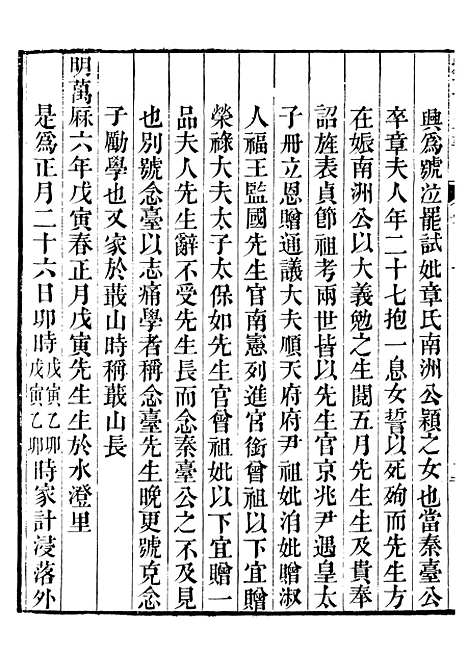 興爲號泣罷試妣章氏南洲公穎之女也當秦臺公
卒章夫人年二十七抱一息女誓以死殉而先生方
在娠南洲公以大義勉之生閱五月先生生及貴奉
詔旌表貞節祖考兩世皆以先生官京兆尹遇皇太
子冊立恩贈通議大夫順天府府尹祖妣洎妣贈淑
人福王監國先生官南憲列進官銜曾祖妣以下宜贈
榮祿大夫太子太保如先生官曾祖妣以下宜贈一
品夫人先生辭不受先生長而念秦臺公之不及見
也別號念臺以志痛學者稱念臺先生晚更號克念
子勵學也又家於蕺山時稱蕺山長
明萬厤六年戊寅春正月戊寅先生生於水澄里
是爲正月二十六日卯時戊寅乙卯戊寅乙卯時家計浸落外